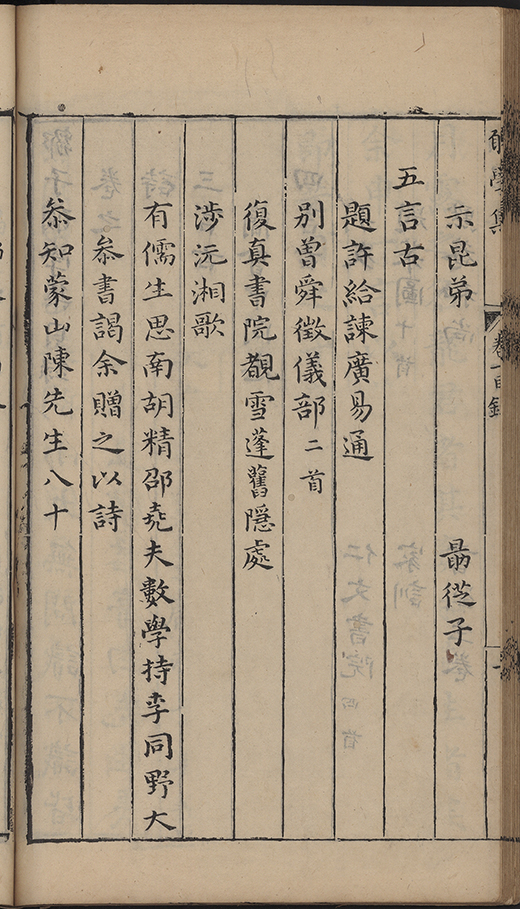 示昆弟 勗從子
五言古
題許給諫廣易通
別曾舜徵儀部二首
復真書院觀雪蓬舊隱處
涉沅湘歌
有儒生思南胡精邵堯夫數學持李同野大
叅書謁余贈之以詩
叅知蒙山陳先生八十